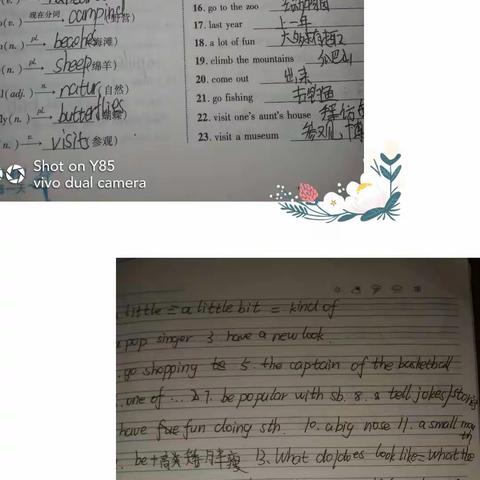 现在分词 camping
(n.) pl. beaches 海滩)
(n.) pl. sheep 绵羊)
l(adj.) n. natur 自然)
ly(n.) pl. butterflies 蝴蝶)
n.) n. visit 参观)
16. go to the zoo
17. last year 上一年
18. a lot of fun
19. climb the mountains
20. come out 出来
21. go fishing 去钓鱼
22. visit one's aunt's house
23. visit a museum
Shot on Y85
vivo dual camera
little = a little bit = kind of
pop singer 3 have a new look
go shopping 5. the captain of the basketball
one of ... 7. be popular with sb. 8. tell jokes/stories
have fun doing sth. 10. a big nose 11. a small mouth
be + 高 矮 胖 瘦 13. What do/does look like = what the